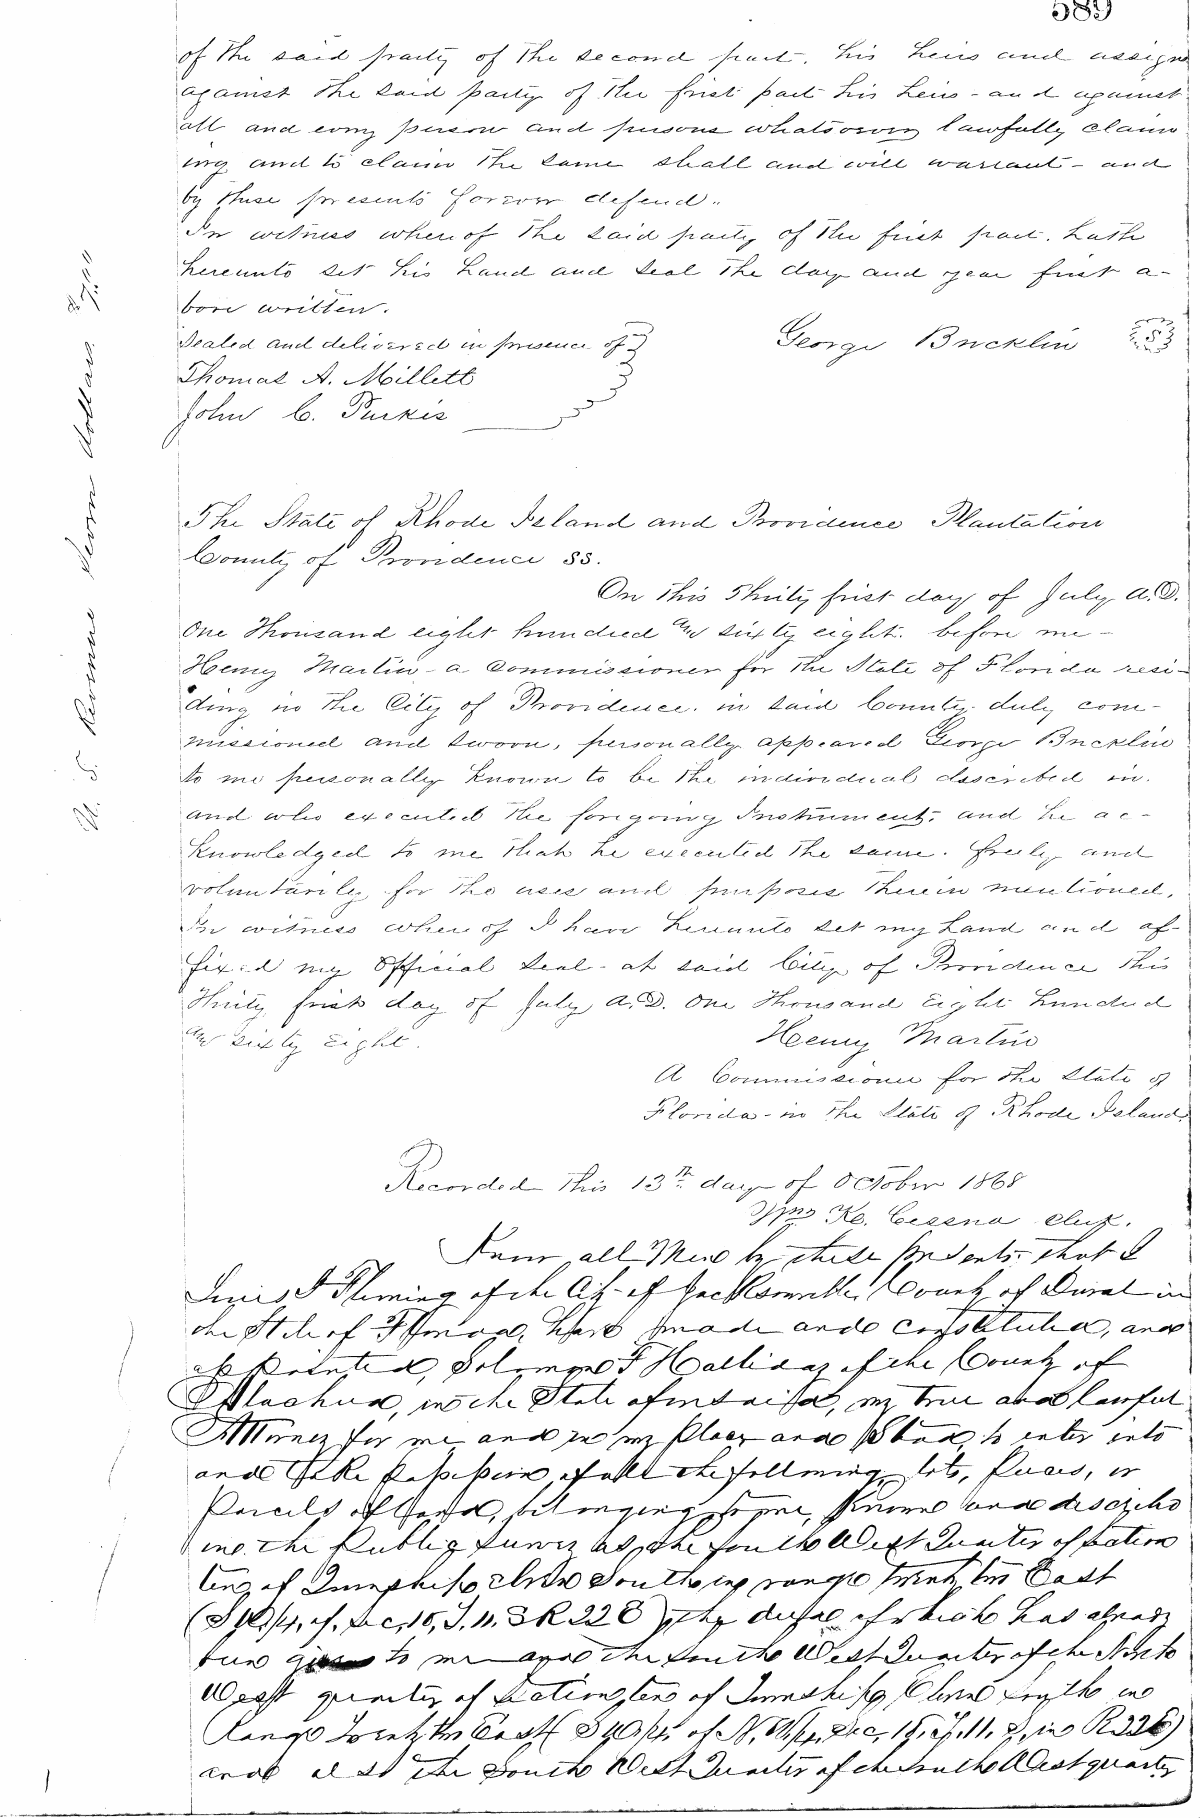 589
of the said party of the second part. his heirs and assigns
against the said party of the first part his heirs - and against
all and every person and persons whatsoever lawfully claim
ing and to claim the same shall and will warrant - and
by these presents forever defend.
In witness whereof the said party of the first part. hath
hereunto set his hand and seal the day and year first a-
bove written.
Sealed and delivered in presence of
George Bucklin
Thomas A. Millett
John C. Purkis
U. S. Revenue Seven dollars $7.00
The State of Rhode Island and Providence Plantation
County of Providence ss.
On this Thirty first day of July A.D.
One Thousand eight hundred and sixty eight. before me -
Henry Martin - a Commissioner for the State of Florida resi-
ding in the City of Providence. in said County. duly com-
missioned and sworn, personally appeared George Bucklin
to me personally known to be the individual described in.
and who executed the foregoing Instrument, and he ac-
knowledged to me that he executed the same. freely and
voluntarily for the uses and purposes therein mentioned.
In witness whereof I have hereunto set my hand and af-
fixed my Official Seal - at said City of Providence this
Thirty first day of July A.D. One Thousand Eight hundred
and Sixty Eight.
Henry Martin
A Commissioner for the State of
Florida - in the State of Rhode Island.
Recorded this 13th day of October 1868
Wm K. Cessna Clerk.
Know all Men by these presents. that I
Louis I Fleming of the City of Jacksonville, County of Duval in
the State of Florida, have made and constituted, and
appointed, Solomon F Halliday of the County of
Alachua, in the State aforesaid, my true and lawful
Attorney for me and in my place and stead to enter into
and take possession of all the following lots, pieces, or
Parcels of land, belonging to me, known and described
in the Public Survey as, the South West Quarter of Section
ten of Township eleven South in range twenty two East
(S W 1/4, of, Sec, 10, T. 11. S R 22 E), the deed of which has already
been given to me and the South West Quarter of the North
West quarter of Section ten of Township Eleven South in
Range twenty two East (S W 1/4 of N, W 1/4, Sec, 10, T. 11. S, in R 22 E)
and also the South West Quarter of the South West quarter